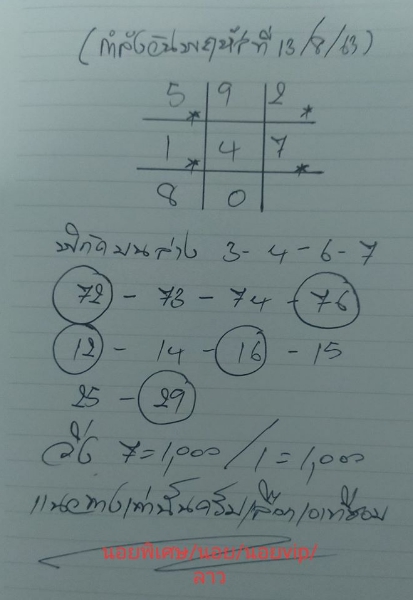 (กำลังวันพฤหัสที่ 13/8/63)
5 9 2
1 4 7
8 0
พิกัดบนล่าง 3-4-6-7
72 - 73 - 74 - 76
12 - 14 - 16 - 15
25 - 29
วิ่ง 7=1,000/1=1,000
แนวทางเท่านั้นครับ/เลือกเอาที่ชอบ
แอบพิเศษ/แอบ/แอบvip/
ลาว